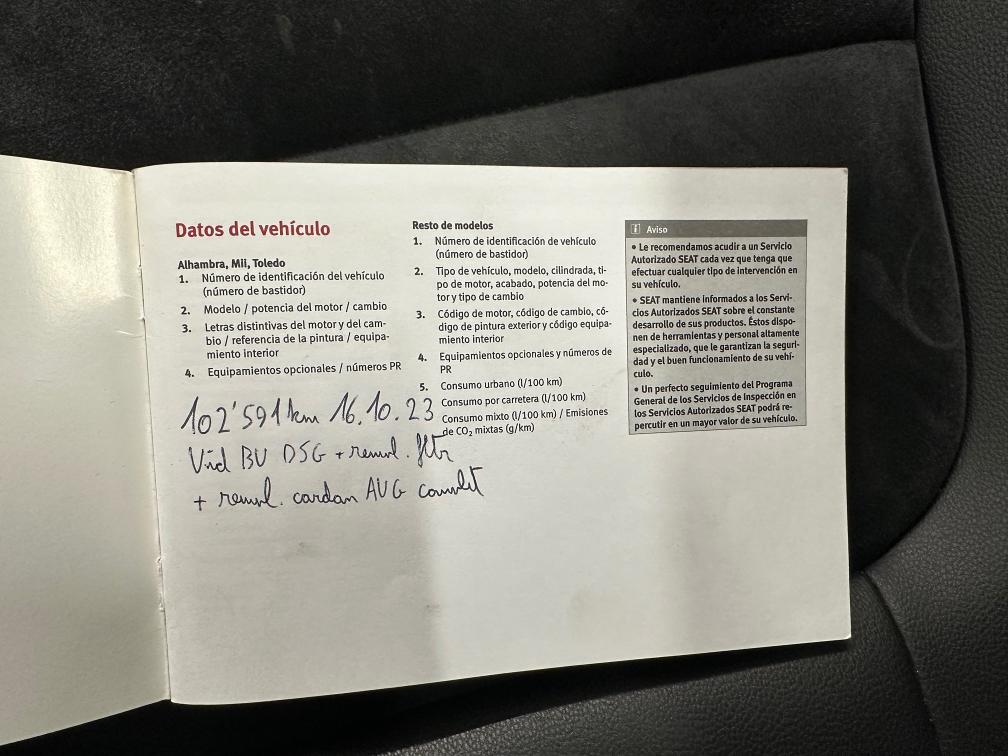 Datos del vehículo
Alhambra, Mii, Toledo
1. Número de identificación del vehículo
(número de bastidor)
2. Modelo / potencia del motor / cambio
3. Letras distintivas del motor y del cam-
bio / referencia de la pintura / equipa-
miento interior
4. Equipamientos opcionales / números PR
102'591km 16.10.23
Vid BV DSG + remvl. fltr
+ remvl. cardan AVG complet
Resto de modelos
1. Número de identificación de vehículo
(número de bastidor)
2. Tipo de vehículo, modelo, cilindrada, ti-
po de motor, acabado, potencia del mo-
tor y tipo de cambio
3. Código de motor, código de cambio, có-
digo de pintura exterior y código equipa-
miento interior
4. Equipamientos opcionales y números de
PR
5. Consumo urbano (l/100 km)
Consumo por carretera (l/100 km)
Consumo mixto (l/100 km) / Emisiones
de CO₂ mixtas (g/km)
i Aviso
• Le recomendamos acudir a un Servicio
Autorizado SEAT cada vez que tenga que
efectuar cualquier tipo de intervención en
su vehículo.
• SEAT mantiene informados a los Servi-
cios Autorizados SEAT sobre el constante
desarrollo de sus productos. Éstos dispo-
nen de herramientas y personal altamente
especializado, que le garantizan la seguri-
dad y el buen funcionamiento de su vehí-
culo.
• Un perfecto seguimiento del Programa
General de los Servicios de Inspección en
los Servicios Autorizados SEAT podrá re-
percutir en un mayor valor de su vehículo.